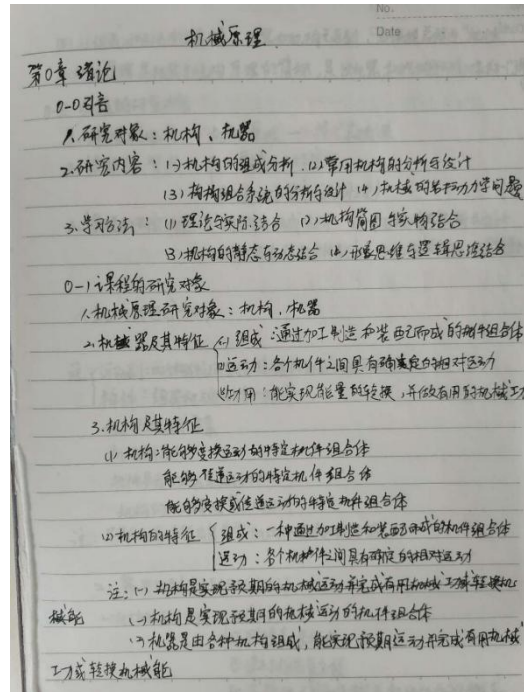 No.
Date
机械原理
第0章 绪论
0-0 引言
1.研究对象：机构、机器
2.研究内容：(1)机构的组成分析 (2)常用机构的分析与设计
(3)机构组合系统的分析与设计 (4)机械的若干动力学问题
3.学习方法：(1)理论与实际结合 (2)机构简图与实物结合
(3)机构的静态与动态结合 (4)形象思维与逻辑思维结合
0-1 课程的研究对象
1.机械原理研究对象：机构、机器
2.机器及其特征 (1)组成：通过加工制造和装配而成的机件组合体
(2)运动：各个机件之间具有确定的相对运动
(3)功用：能实现能量的转换，并做有用的机械功
3.机构及其特征
(1)机构：能够变换运动的特定机件组合体
能够传递运动的特定机件组合体
能够变换或传递运动的特定机件组合体
(2)机构的特征 组成：一种通过加工制造和装配而成的机件组合体
运动：各个机件之间具有确定的相对运动
注：(1)机构是实现预期的机械运动并完成有用机械功或转换机
械能
(2)机构是实现预期的机械运动的机件组合体
(3)机器是由各种机构组成，能实现预期运动并完成有用机械
功或转换机械能